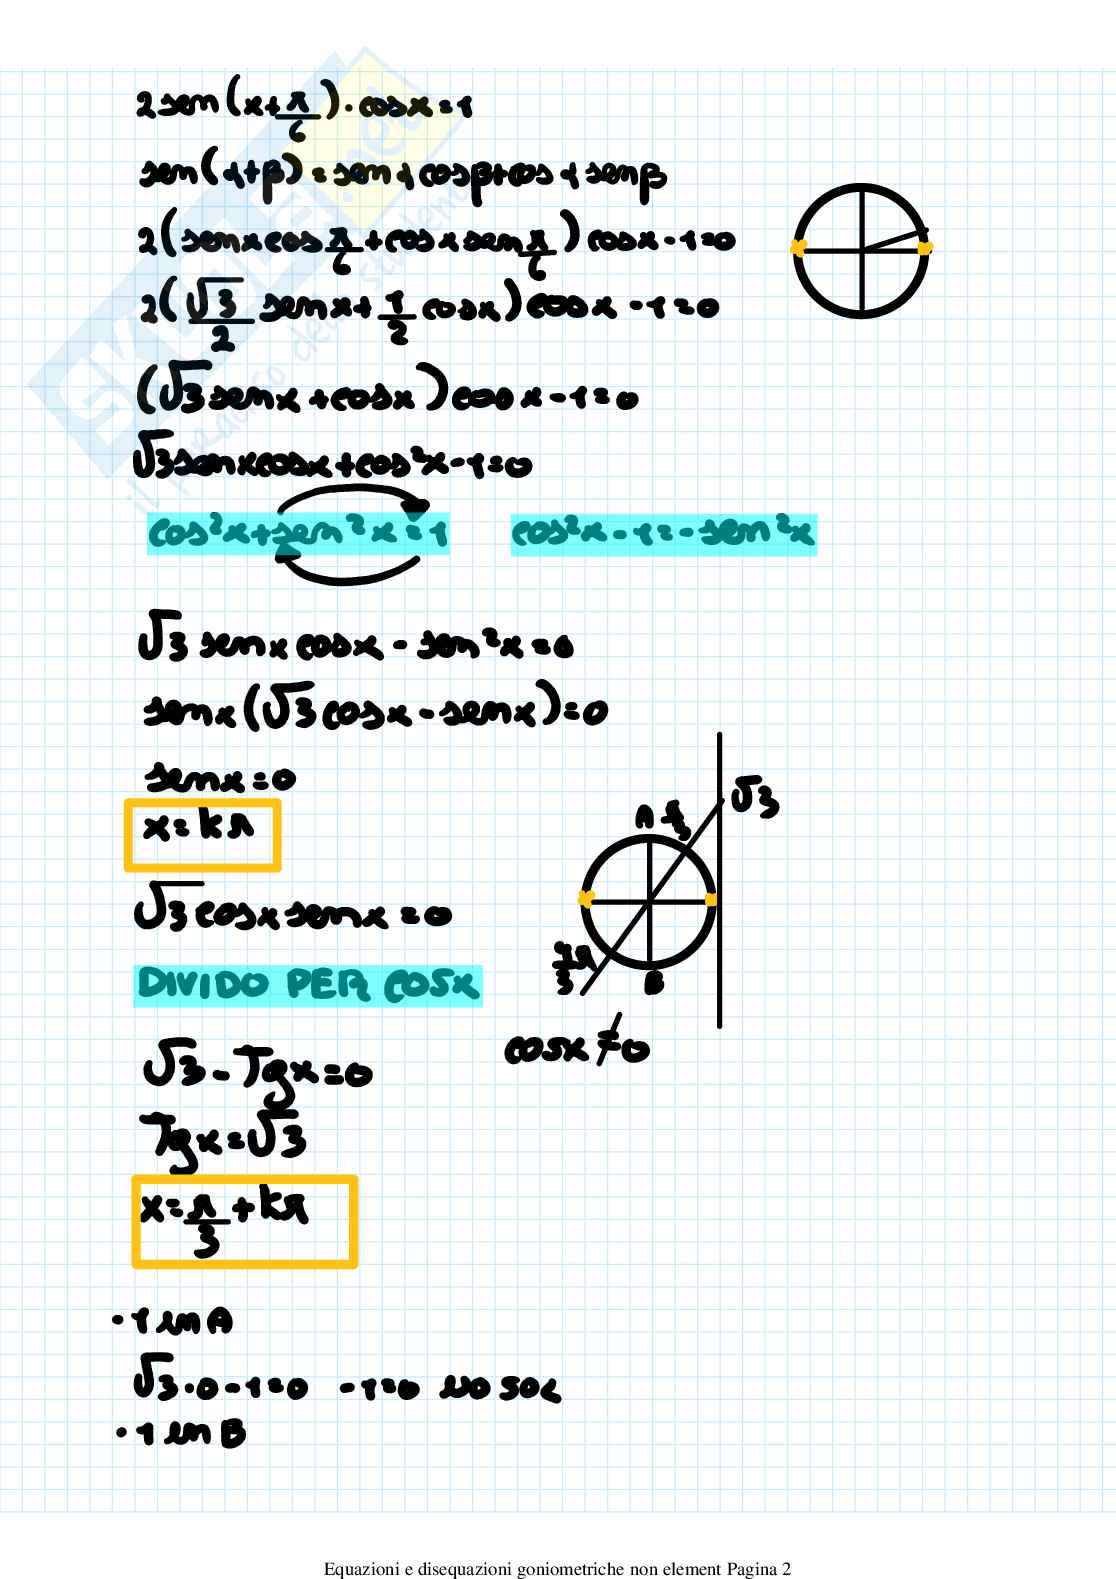 2sen(x+π/6)·cosx=1
sen(α+β)=senαcosβ+cosαsenβ
2(senxcosπ/6+cosxsenπ/6)cosx-1=0
2(√3/2 senx+1/2 cosx)cosx-1=0
(√3senx+cosx)cosx-1=0
√3senxcosx+cos²x-1=0
cos²x+sen²x=1 cos²x-1=-sen²x
√3 senxcosx-sen²x=0
senx(√3cosx-senx)=0
senx=0
x=kπ
√3cosxsenx=0
DIVIDO PER COSX
√3
A
B
cosx≠0
√3-Tgx=0
Tgx=√3
x=π/3+kπ
·1 in A
√3·0-1=0 -1=0 NO SOL
·1 in B
SKUOLA.net
il paradiso dello studente
Equazioni e disequazioni goniometriche non element Pagina 2